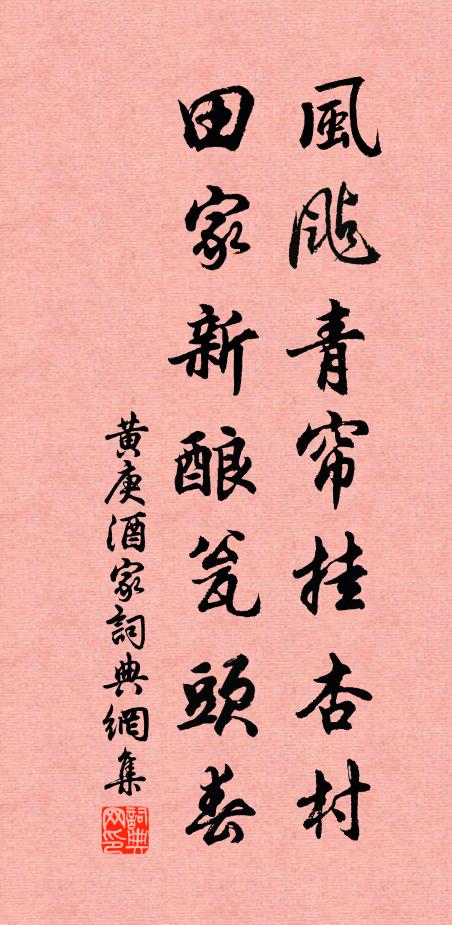 風颭青帘挂杏村
田家新酿瓮頭春
黄庚酒家詞典網集
詞典网印